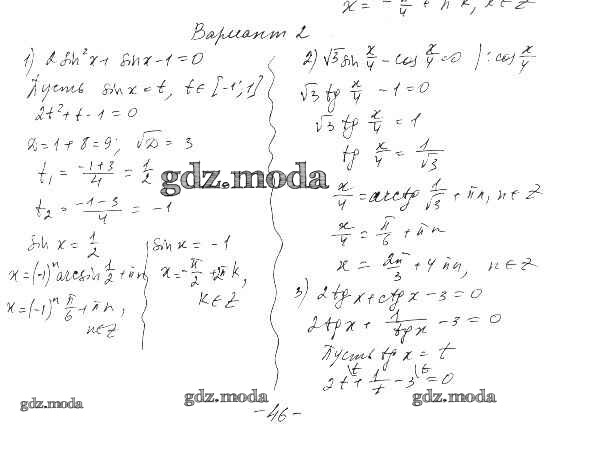 x = -π/4 + πk, k∈Z
Вариант 2
1) 2sin²x + sinx - 1 = 0
Пусть sinx = t, t∈[-1;1]
2t² + t - 1 = 0
D = 1 + 8 = 9; √D = 3
t₁ = (-1+3)/4 = 1/2
t₂ = (-1-3)/4 = -1
sin x = 1/2
x = (-1)ⁿ arcsin 1/2 + πn
x = (-1)ⁿ π/6 + πn,
n∈Z
sin x = -1
x = -π/2 + 2πk,
k∈Z
2) √3 sin x/4 - cos x/4 = 0 | : cos x/4
√3 tg x/4 - 1 = 0
√3 tg x/4 = 1
tg x/4 = 1/√3
x/4 = arctg 1/√3 + πn, n∈Z
x/4 = π/6 + πn
x = 2π/3 + 4πn, n∈Z
3) 2tgx + ctgx - 3 = 0
2tgx + 1/tgx - 3 = 0
Пусть tgx = t
2t\t + 1/t - 3\t = 0
gdz.moda
gdz.moda
gdz.moda
gdz.moda
-46-